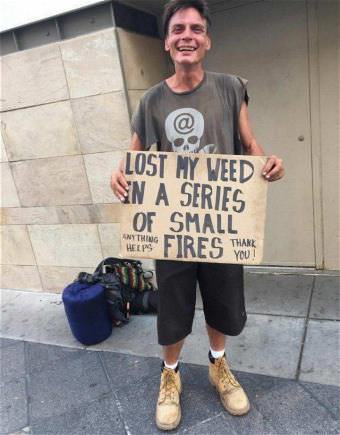 @
LOST MY WEED
IN A SERIES
OF SMALL
ANYTHING HELPS FIRES THANK YOU!